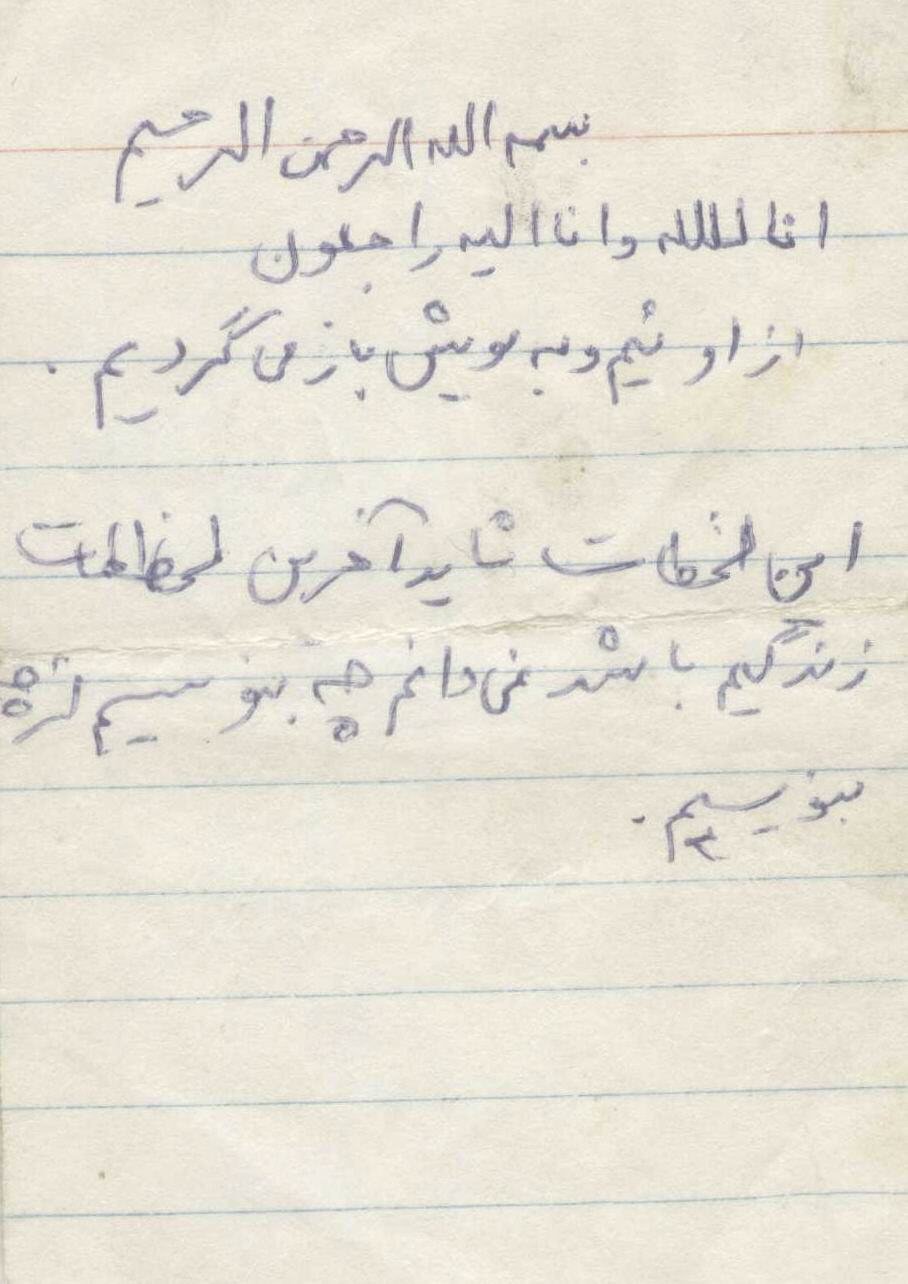 بسمه الله الرحمن الرحیم
انا لللله وانا الیه راجعون
از او ئیم و به سویش باز می گردیم .
این لحظات شاید آخرین لحظات
زندگیم باشد نمی دانم چه بنویسیم از چه
بنویسیم .